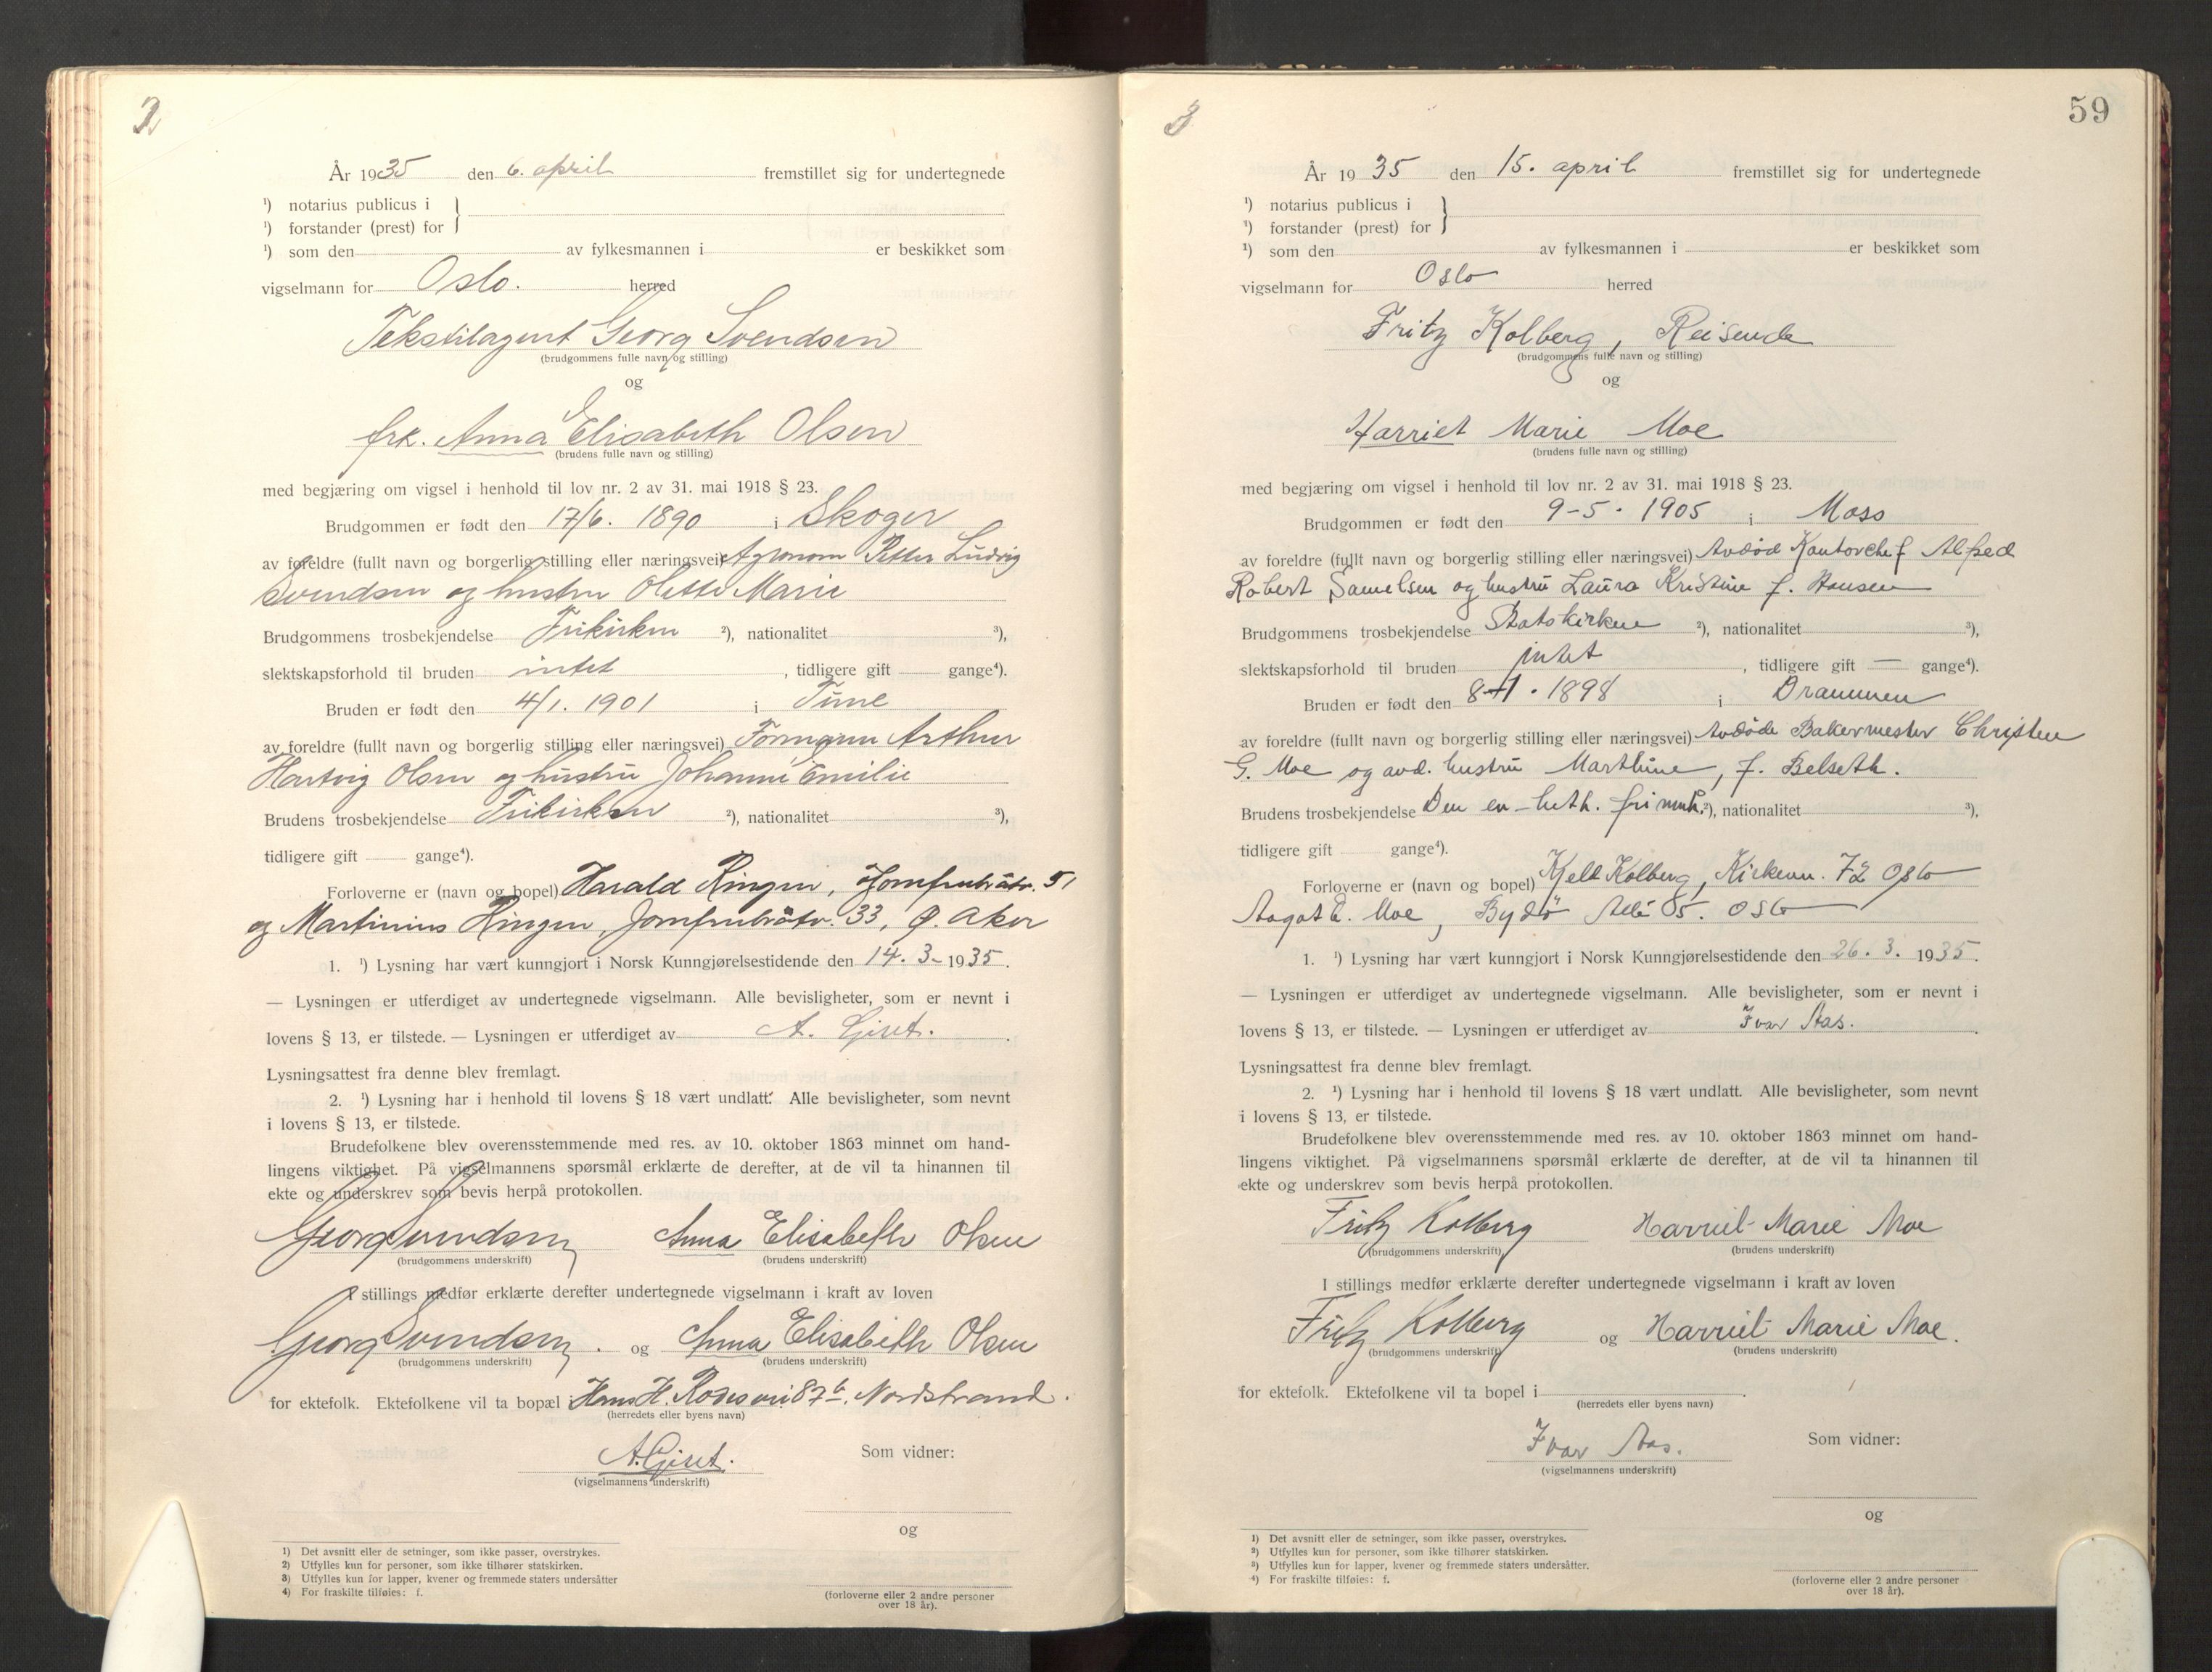 2
År 1935 den 6. april fremstillet sig for undertegnede
¹) notarius publicus i
¹) forstander (prest) for
¹) som den av fylkesmannen i er beskikket som
vigselmann for Oslo. herred
Tekstilagent Georg Svendsen
(brudgommens fulle navn og stilling)
og
frk. Anna Elisabeth Olsen
(brudens fulle navn og stilling)
med begjæring om vigsel i henhold til lov nr. 2 av 31. mai 1918 § 23.
Brudgommen er født den 17/6. 1890 i Skoger
av foreldre (fullt navn og borgerlig stilling eller næringsvei) Agronom Petter Ludvig
Svendsen og hustru Olette Marie
Brudgommens trosbekjendelse Frikirken ²), nationalitet ³),
slektskapsforhold til bruden intet , tidligere gift gange⁴).
Bruden er født den 4/1. 1901 i Tune
av foreldre (fullt navn og borgerlig stilling eller næringsvei) Formann Arthur
Hartvig Olsen og hustru Johanne Emilie
Brudens trosbekjendelse Frikirken ²), nationalitet ³),
tidligere gift gange⁴).
Forloverne er (navn og bopel) Harald Ringen, Jomfrubråtv. 51
og Martinius Ringen, Jomfrubråtv. 33, Ø. Aker
1. ¹) Lysning har vært kunngjort i Norsk Kunngjørelsestidende den 14. 3- 1935.
— Lysningen er utferdiget av undertegnede vigselmann. Alle bevisligheter, som er nevnt i
lovens § 13, er tilstede. — Lysningen er utferdiget av A. Gjset.
Lysningsattest fra denne blev fremlagt.
2. ¹) Lysning har i henhold til lovens § 18 vært undlatt. Alle bevisligheter, som nevnt
i lovens § 13, er tilstede.
Brudefolkene blev overensstemmende med res. av 10. oktober 1863 minnet om hand-
lingens viktighet. På vigselmannens spørsmål erklærte de derefter, at de vil ta hinannen til
ekte og underskrev som bevis herpå protokollen.
Georg Svendsen Anna Elisabeth Olsen
(brudgommens underskrift) (brudens underskrift)
I stillings medfør erklærte derefter undertegnede vigselmann i kraft av loven
Georg Svendsen. og Anna Elisabeth Olsen
(brudgommens underskrift) (brudens underskrift)
for ektefolk. Ektefolkene vil ta bopæl i Hans H. Rodes vei 87 b. Nordstrand.
(herredets eller byens navn)
A. Gjset. Som vidner:
(vigselmannens underskrift)
og
1) Det avsnitt eller de setninger, som ikke passer, overstrykes.
2) Utfylles kun for personer, som ikke tilhører statskirken.
3) Utfylles kun for lapper, kvener og fremmede staters undersåtter
4) For fraskilte tilføies: f.
(forloverne eller 2 andre personer
over 18 år).
3
59
År 1935 den 15. april fremstillet sig for undertegnede
¹) notarius publicus i
¹) forstander (prest) for
¹) som den av fylkesmannen i er beskikket som
vigselmann for Oslo herred
Fritz Kolberg, Reisende
(brudgommens fulle navn og stilling)
og
Harriet Marie Moe
(brudens fulle navn og stilling)
med begjæring om vigsel i henhold til lov nr. 2 av 31. mai 1918 § 23.
Brudgommen er født den 9-5. 1905 i Moss
av foreldre (fullt navn og borgerlig stilling eller næringsvei) Avdød Kontorchef Alfred
Robert Samelsen og hustru Laura Kristine f. Hansen
Brudgommens trosbekjendelse Statskirken ²), nationalitet ³),
slektskapsforhold til bruden intet , tidligere gift — gange⁴).
Bruden er født den 8-1. 1898 i Drammen
av foreldre (fullt navn og borgerlig stilling eller næringsvei) Avdøde Bakermester Christen
G. Moe og avd. hustru Marthine, f. Belseth.
Brudens trosbekjendelse Den ev-luth. frimnh. ²), nationalitet ³),
tidligere gift gange⁴).
Forloverne er (navn og bopel) Kjell Kolberg, Kirkevn. 72 Oslo
Aagot E. Moe, Bydø Allé 85. Oslo
1. ¹) Lysning har vært kunngjort i Norsk Kunngjørelsestidende den 26. 3. 1935.
— Lysningen er utferdiget av undertegnede vigselmann. Alle bevisligheter, som er nevnt i
lovens § 13, er tilstede. — Lysningen er utferdiget av Ivar Aas.
Lysningsattest fra denne blev fremlagt.
2. ¹) Lysning har i henhold til lovens § 18 vært undlatt. Alle bevisligheter, som nevnt
i lovens § 13, er tilstede.
Brudefolkene blev overensstemmende med res. av 10. oktober 1863 minnet om hand-
lingens viktighet. På vigselmannens spørsmål erklærte de derefter, at de vil ta hinannen til
ekte og underskrev som bevis herpå protokollen.
Fritz Kolberg Harriet Marie Moe
(brudgommens underskrift) (brudens underskrift)
I stillings medfør erklærte derefter undertegnede vigselmann i kraft av loven
Fritz Kolberg og Harriet Marie Moe.
(brudgommens underskrift) (brudens underskrift)
for ektefolk. Ektefolkene vil ta bopel i .
(herredets eller byens navn)
Ivar Aas. Som vidner:
(vigselmannens underskrift)
og
¹) Det avsnitt eller de setninger, som ikke passer, overstrykes.
²) Utfylles kun for personer, som ikke tilhører statskirken.
³) Utfylles kun for lapper, kvener og fremmede staters undersåtter.
⁴) For fraskilte tilføies: f.
(forloverne eller 2 andre personer
over 18 år).